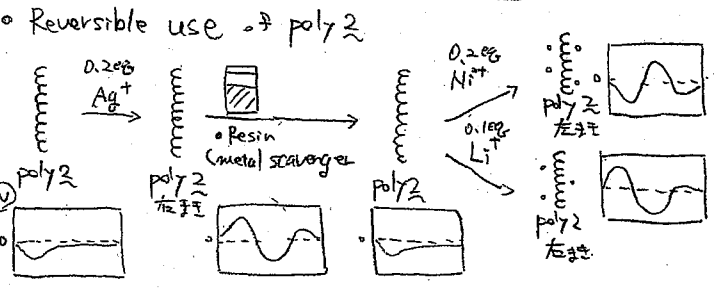 • Reversible use of poly 2
0.2eq
Ag⁺
• Resin
(metal scavenger
0.2eq
Ni²⁺
0.1eq
Li⁺
poly 2
poly 2
左まき
poly 2
poly 2
左まき
poly 2